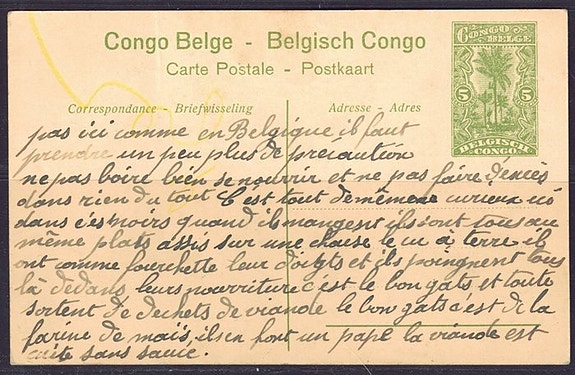 Congo Belge - Belgisch Congo
Carte Postale - Postkaart
CONGO BELGE
5 5
BELGISCH CONGO
Correspondance - Briefwisseling
Adresse - Adres
pas ici comme en Belgique il faut
prendre un peu plus de precaution
ne pas boire bien se nourrir et ne pas faire d'excès
dans rien du tout C'est tout de même curieux
dans ces noirs quand il mangent ils sont tous au
même plats assis sur une chaise le cu a terre il
ont comme fourchette leur doigts et ils poingnent tous
là dedans leurs nourriture c'est le bon gats et toute
sortent de dechets de viande le bon gats c'est de la
farine de maïs, ils en font un pape la viande est
cuite sans sauce.